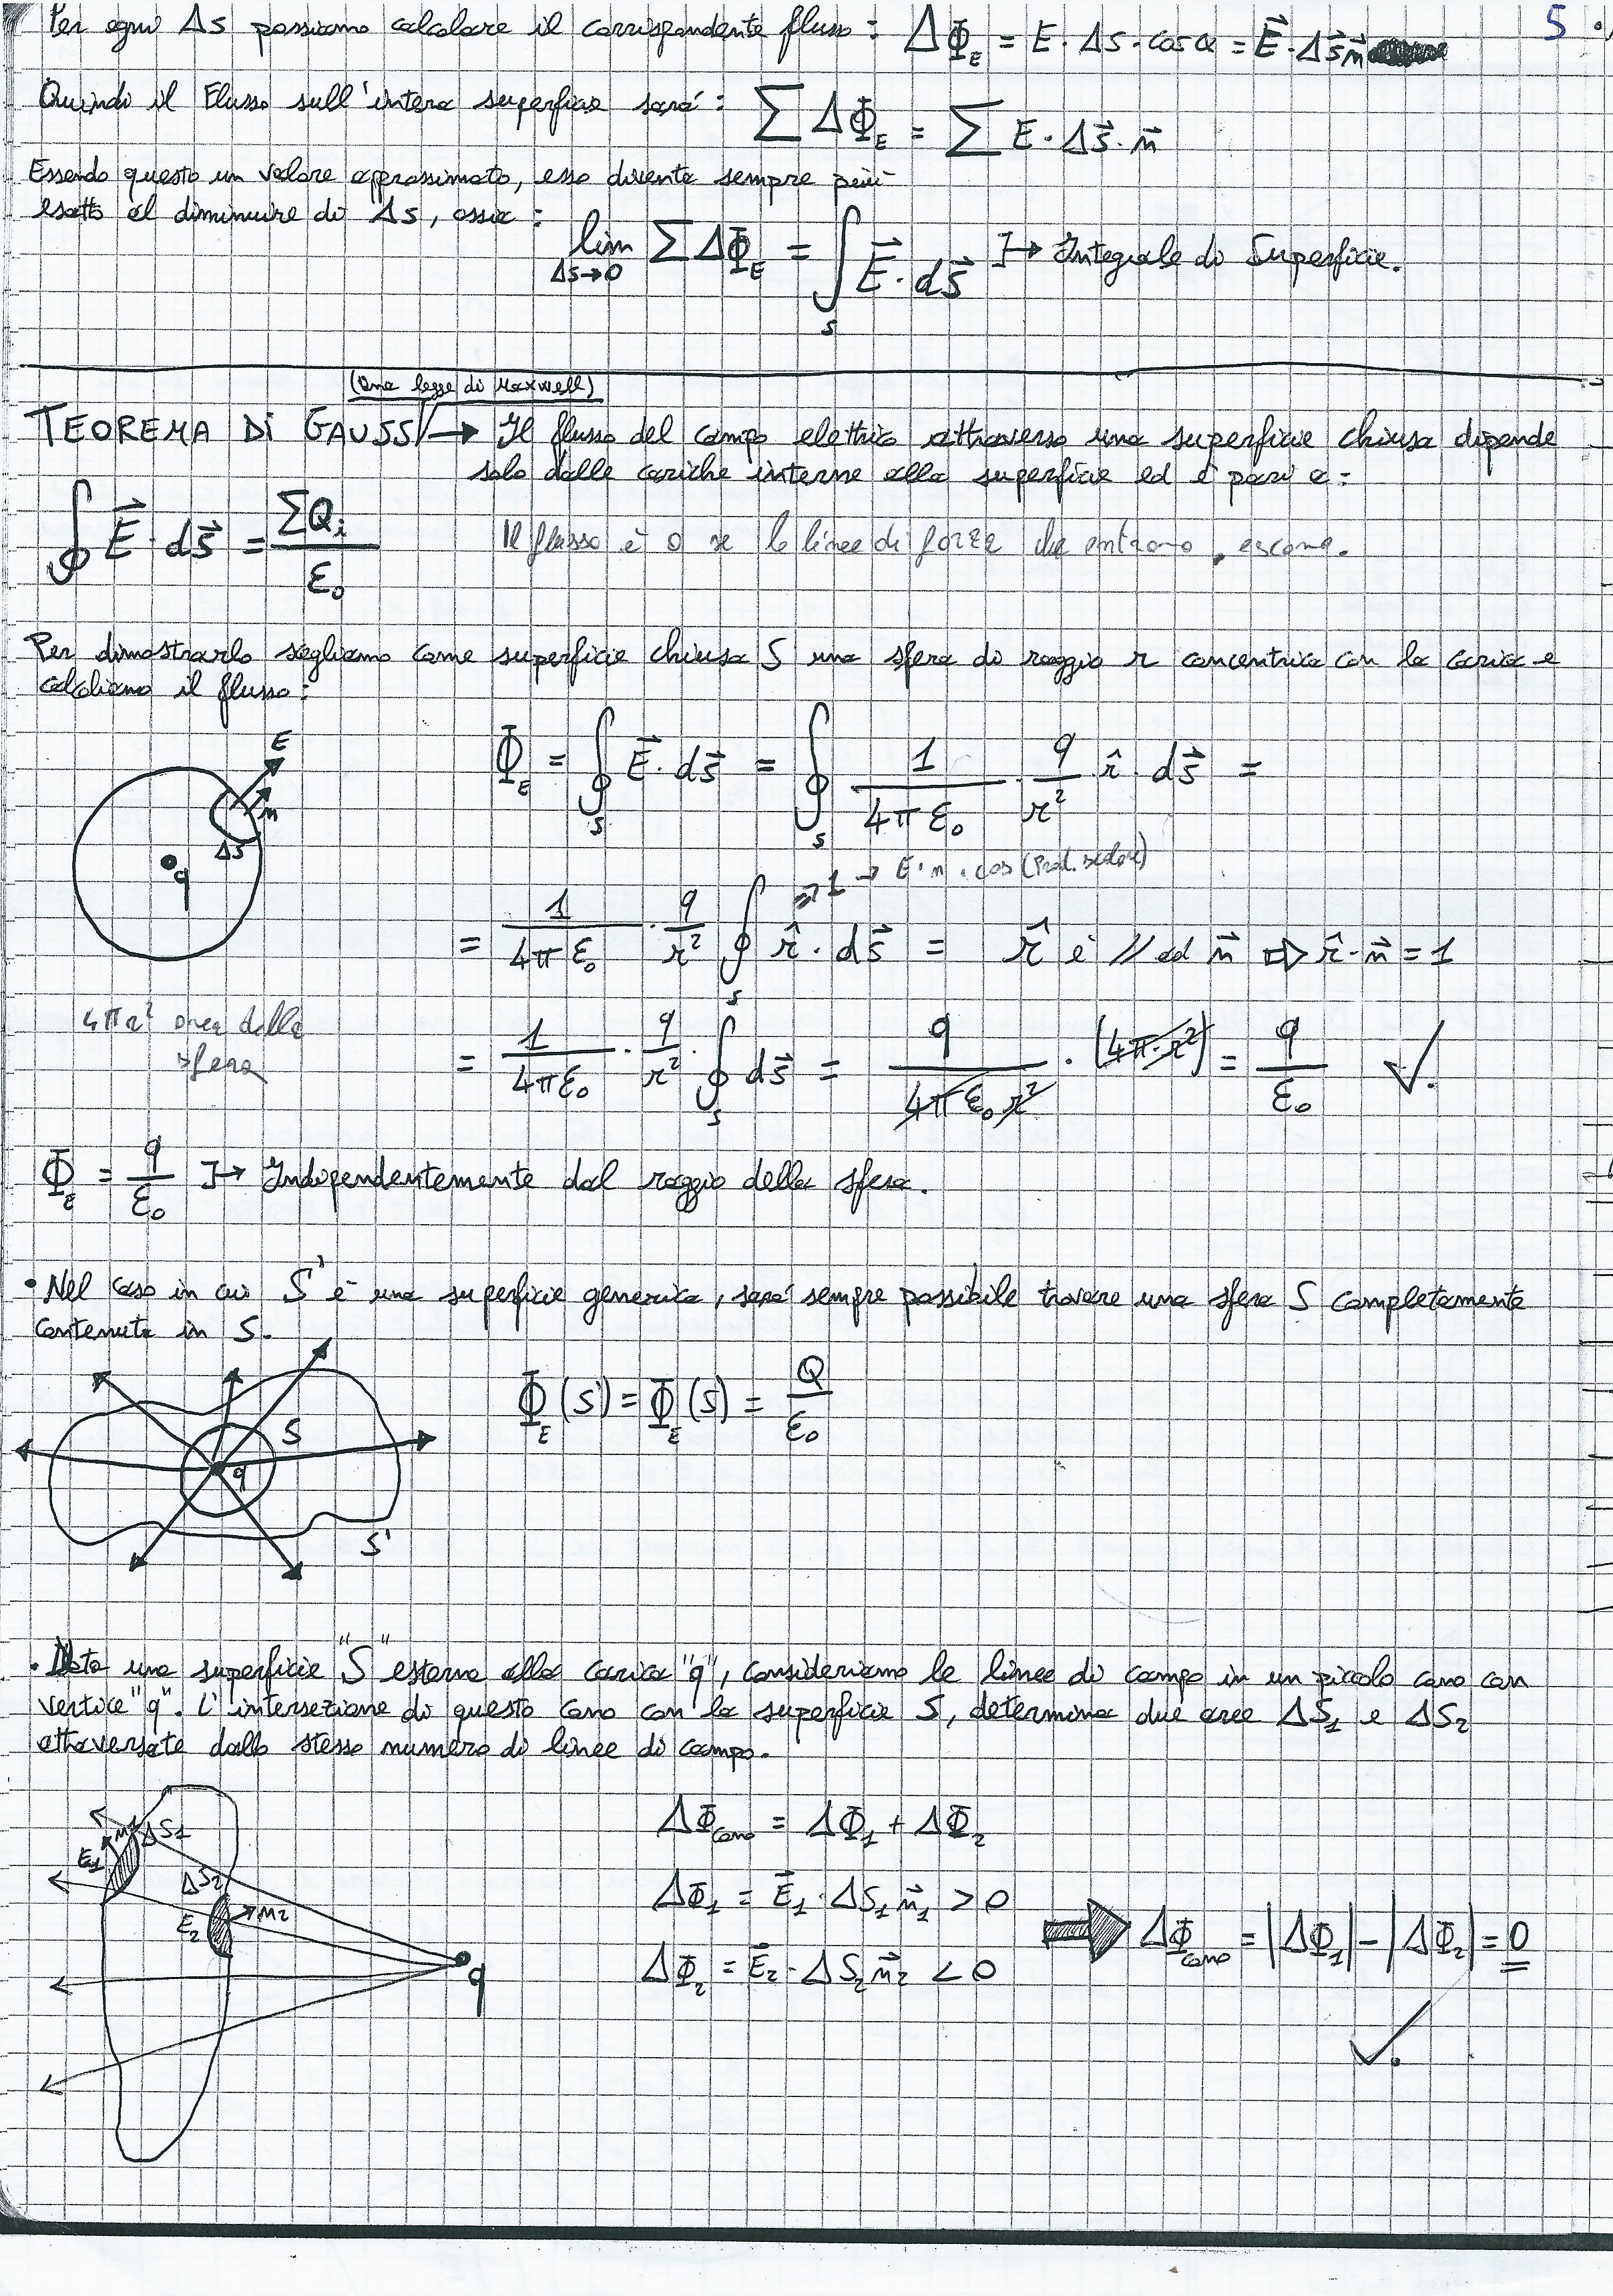 Per ogni Δs possiamo calcolare il corrispondente flusso: ΔΦ_E = E · Δs · cos α = E⃗ · Δs⃗ n⃗
5
Quindi il Flusso sull'intera superficie sarà: ∑ ΔΦ_E = ∑ E · Δs⃗ · n⃗
Essendo questo un valore approssimato, esso diventa sempre più
esatto al diminuire di Δs, ossia:
lim_{Δs→0} ∑ ΔΦ_E = ∫_S E⃗ · ds⃗ ]→ Integrale di Superficie.
(Una legge di Maxwell)
TEOREMA DI GAUSS → Il flusso del campo elettrico attraverso una superficie chiusa dipende
solo dalle cariche interne alla superficie ed è pari a:
∮ E⃗ · ds⃗ = ∑Q_i / ε_0
Il flusso è 0 se le linee di forza che entrano, escono.
Per dimostrarlo scegliamo come superficie chiusa S una sfera di raggio r concentrica con la carica e
calcoliamo il flusso:
E
n
Δs
q
Φ_E = ∮_S E⃗ · ds⃗ = ∮_S 1/(4πε_0) · q/r² r̂ · ds⃗ =
⇒ 1 → E · n · cos (Prod. scalare)
= 1/(4πε_0) · q/r² ∮_S r̂ · ds⃗ = r̂ è // ad n⃗ ⇒ r̂ · n⃗ = 1
4πr² area della
sfera
= 1/(4πε_0) · q/r² · ∮_S ds⃗ = q/(4πε_0 r²) · (4π · r²) = q/ε_0 ✓.
Φ_E = q/ε_0 ]→ Indipendentemente dal raggio della sfera.
• Nel caso in cui S' è una superficie generica, sarà sempre possibile trovare una sfera S completamente
contenuta in S.
S
q
S'
Φ_E (S') = Φ_E (S) = Q/ε_0
• Data una superficie "S" esterna alla carica "q", consideriamo le linee di campo in un piccolo cono con
vertice "q". L'intersezione di questo cono con la superficie S, determina due aree ΔS_1 e ΔS_2
attraversate dallo stesso numero di linee di campo.
n1
ΔS1
E1
ΔS2
E2
n2
q
ΔΦ_cono = ΔΦ_1 + ΔΦ_2
ΔΦ_1 = E⃗_1 · ΔS_1 n⃗_1 > 0
ΔΦ_2 = E⃗_2 · ΔS_2 n⃗_2 < 0
⇒ ΔΦ_cono = |ΔΦ_1| − |ΔΦ_2| = 0
✓.